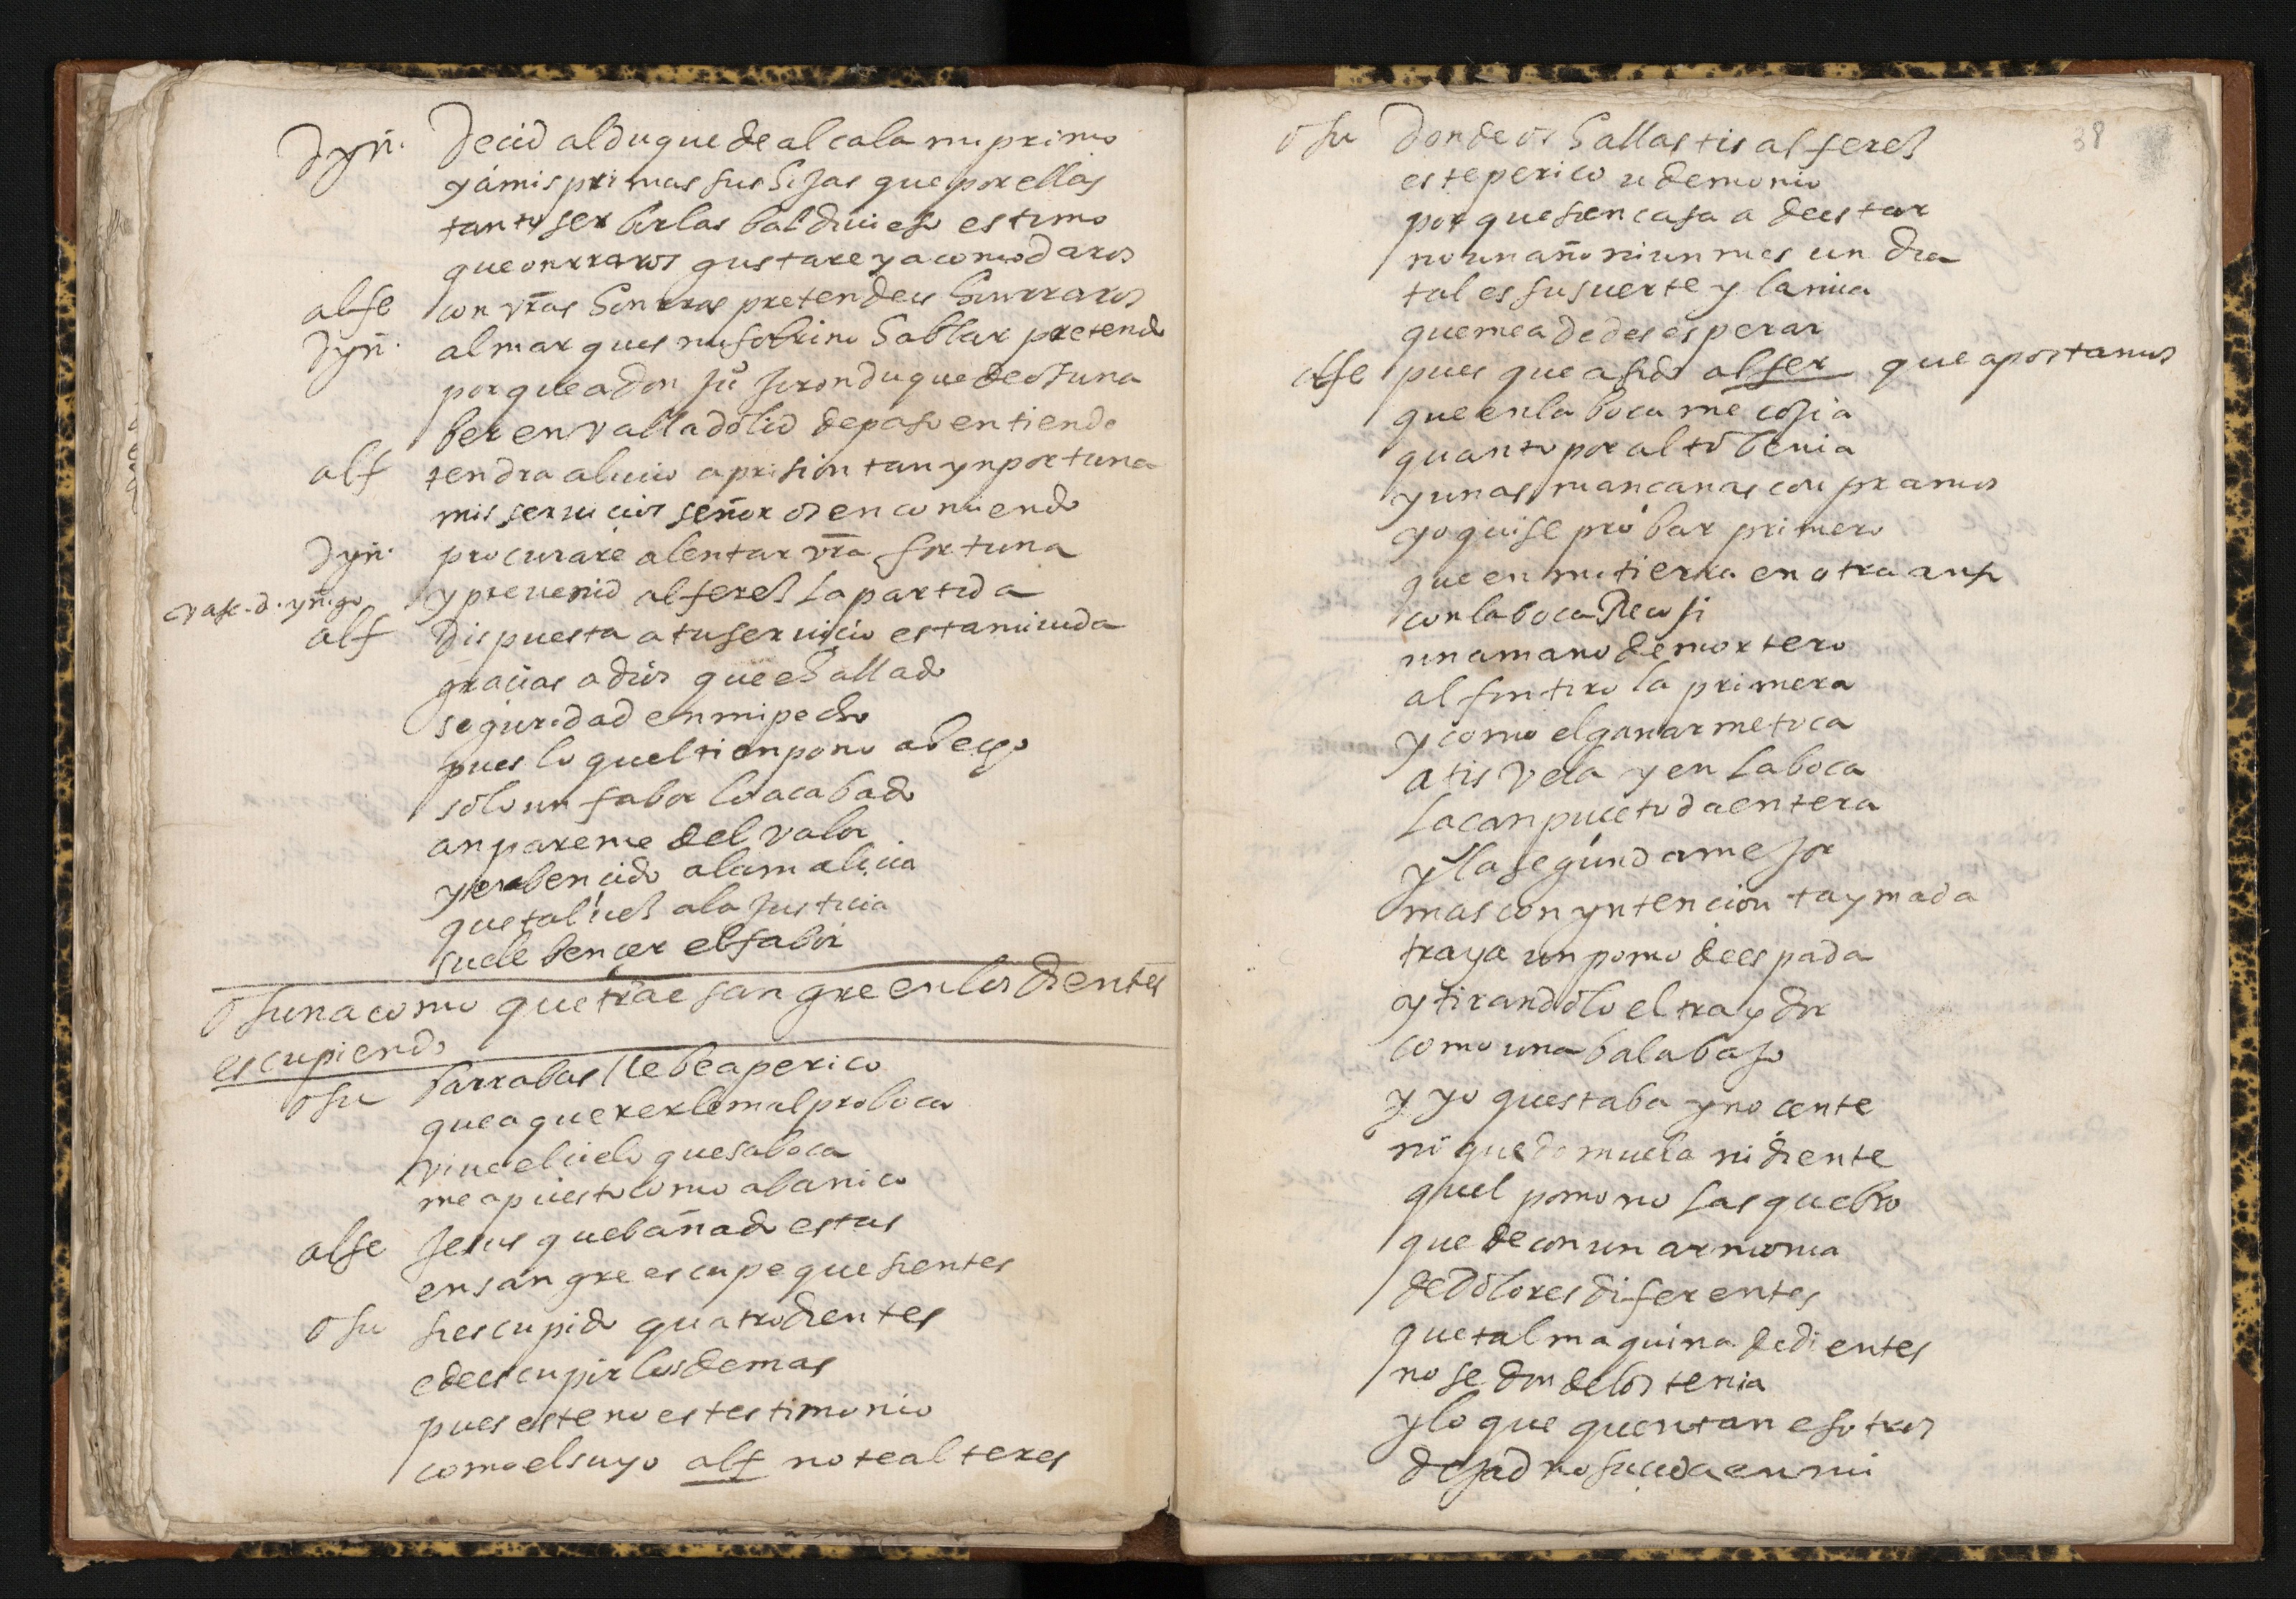 dyñ. decid al duque de alcala mi primo
y a mis primas sus hijas que por ellas
tanto serbirlas baldiuieso estimo
que onrraros gustare y acomodaros
alfe con vras honrras pretendeis honrraros
dyñ. al marques mi sobrino hablar pretendo
porque a don ju jiron duque de osuna
ber en valladolid de paso entiendo
alf tendra aliuio a prision tan ynportuna
mis seruicios señor os encomiendo
dyñ. procurare alentar vra fortuna
y preuenid alferez la partida
vase. d. yñigo
alf dispuesta a tu seruicio esta mi uida
gracias a dios que e hallado
seguridad en mi pecho
pues lo quel tienpo no a hecho
solo un fabor lo a acabado
anpareme del valor
y e bencido a la malicia
que tal uez a la justicia
suele bençer el fabor
osuna como que trae sangre en los dientes
escupiendo
osu barrabas llebe a perico
que a quererlo mal proboca
viue el cielo ques a boca
me a puesto como abanico
alfe jesus que bañado estas
en sangre escupe que sientes
osu si e scupido quatro dientes
e de escupir los demas
pues este no es testimonio
como el suyo alf no te alteres
38
osu donde os hallastis alferez
este perico u demonio
porque si en casa a de estar
no un año ni un mes un dia
tal es su suerte y la mia
que me a de desesperar
alfe pues que a sido alfer que apostamos
que en la boca me cojia
quanto por alto benia
y unas mancanas conpramos
yo quise probar primero
que en mi tierra en otra ansi
con la boca Recoji
una mano de mortero
al fin tiro la primera
y como el ganar me toca
atisvela y en la boca
la canpuce toda entera
y la segunda mejor
mas con yntencion taymada
traya un pomo de espada
y tirandolo el traydor
como una bala bajo
y yo questaba ynocente
ni quedo muela ni diente
quel pomo no las quebro
quede con un armonia
de dolores diferentes
que tal maquina de dientes
no se donde los tenia
y lo que quentan esotros
dejad no suceda en mi